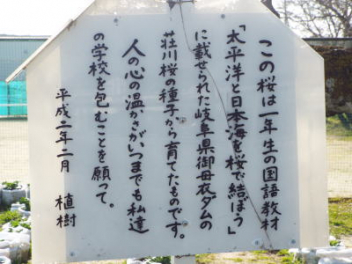 この桜は一年生の国語教材
「太平洋と日本海を桜で結ぼう」
に載せられた岐阜県御母衣ダムの
荘川桜の種子から育てたものです。
人の心の温かさがいつまでも私達
の学校を包むことを願って。
平成二年二月 植樹